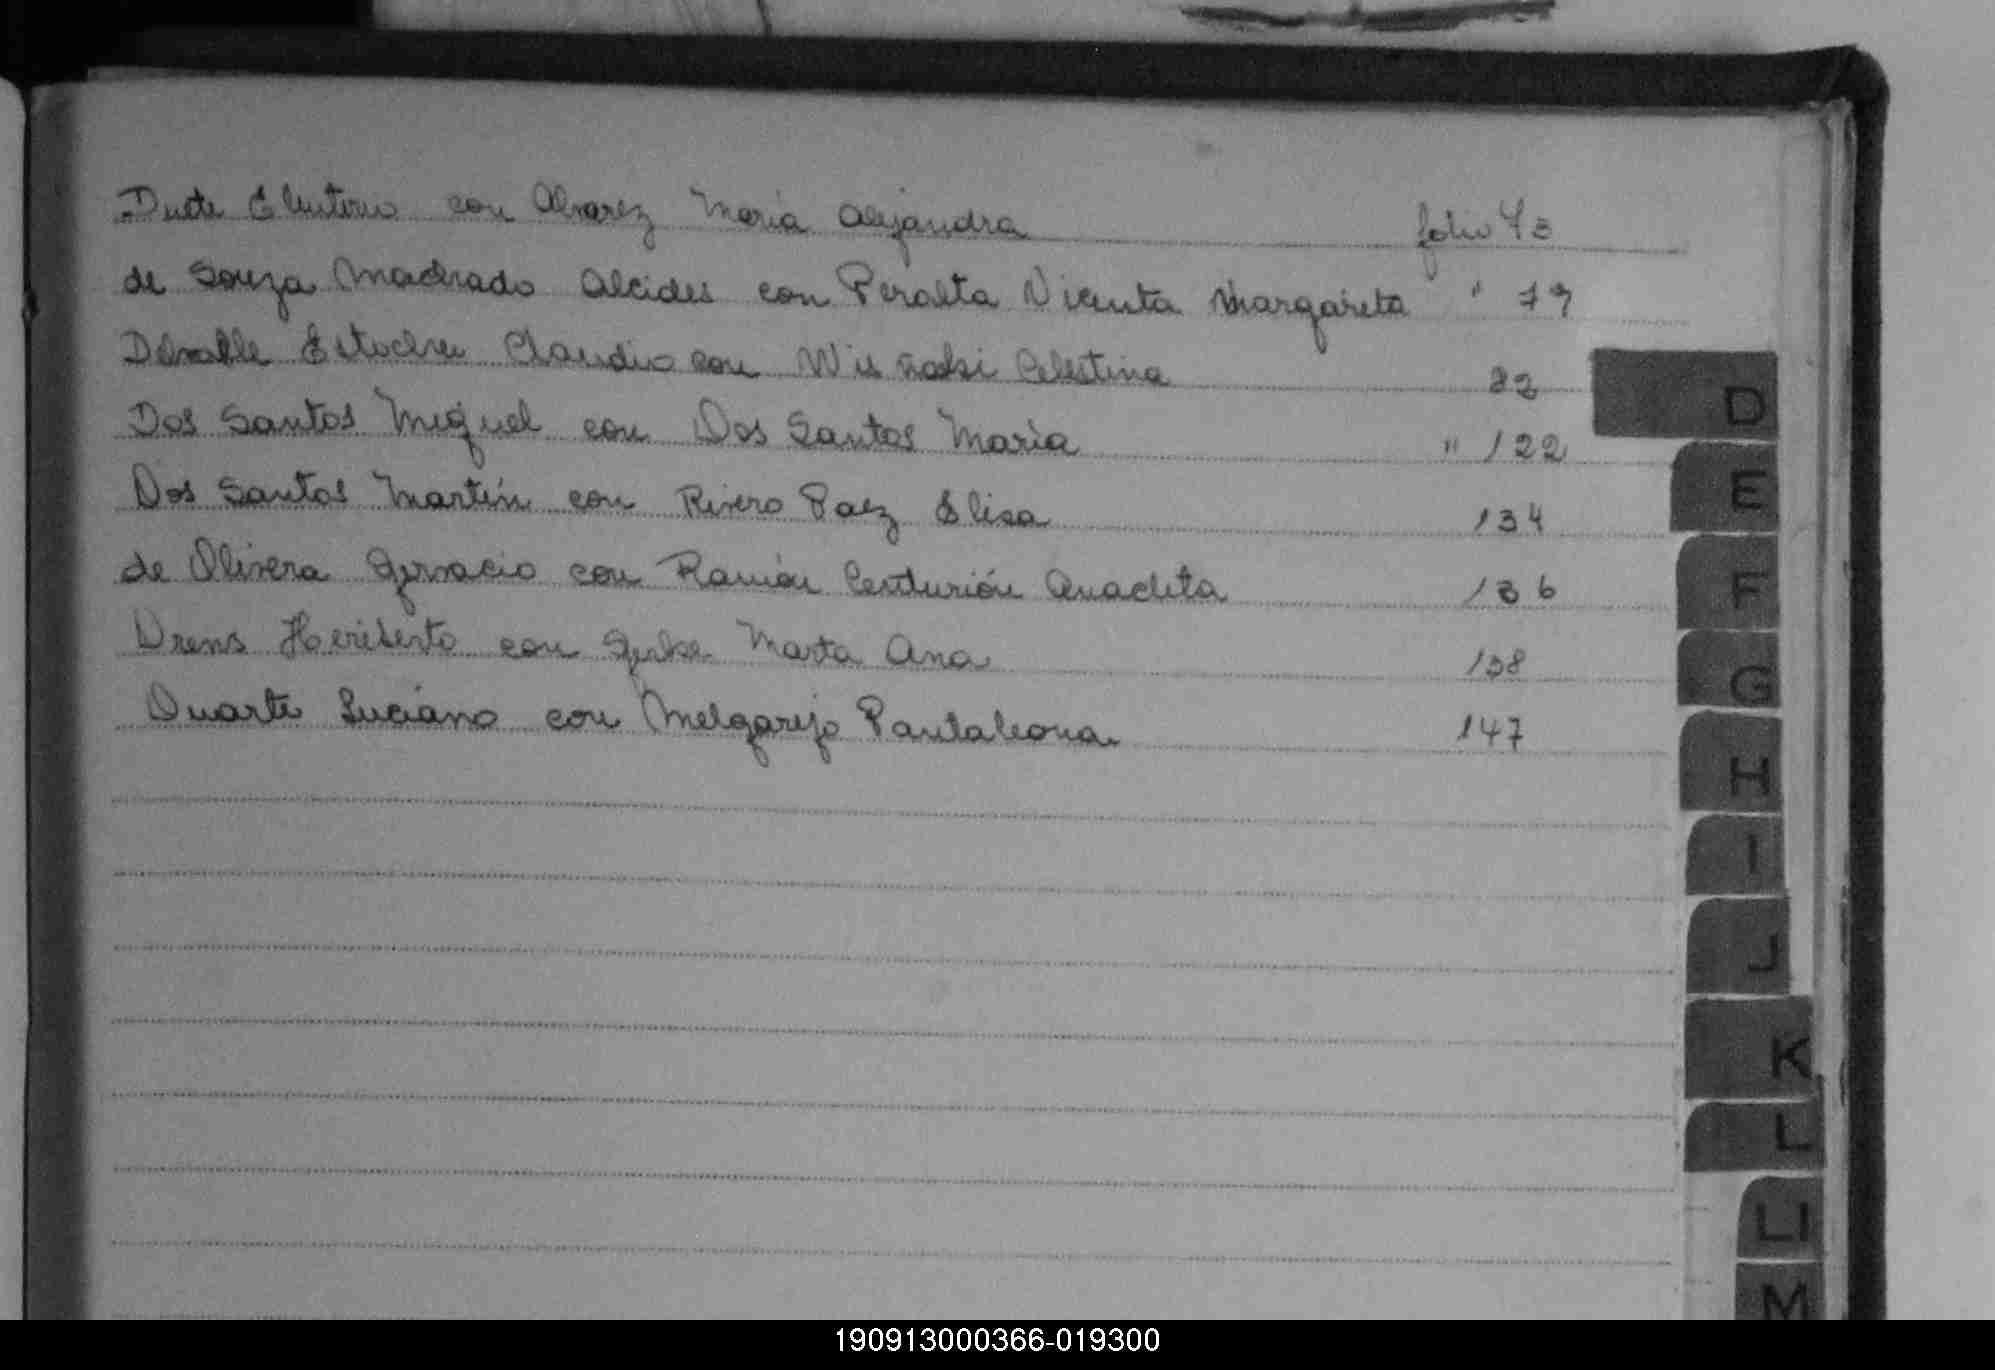 Duete Eleuterio con Alvarez María Alejandra folio 43
de Souza Machado Alcides con Peralta Vicenta Margarita " 79
Claudio con Celestina 82
Dos Santos Miguel con Dos Santos María " 122
Dos Santos Martín con Rivero Paez Elisa 134
de Olivera Gervacio con Ramón Centurión Anacleta 136
Drens Heriberto con Marta Ana 138
Duarte Luciano con Melgarejo Pantaleona 147
D
E
F
G
H
I
J
K
L
Ll
M
190913000366-019300